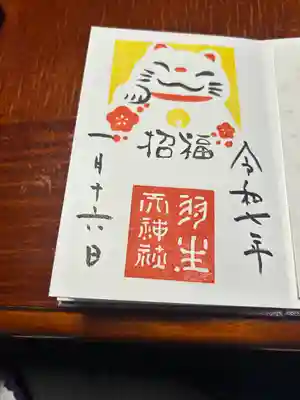 令和七年
招福
羽生
天神社
一月十六日